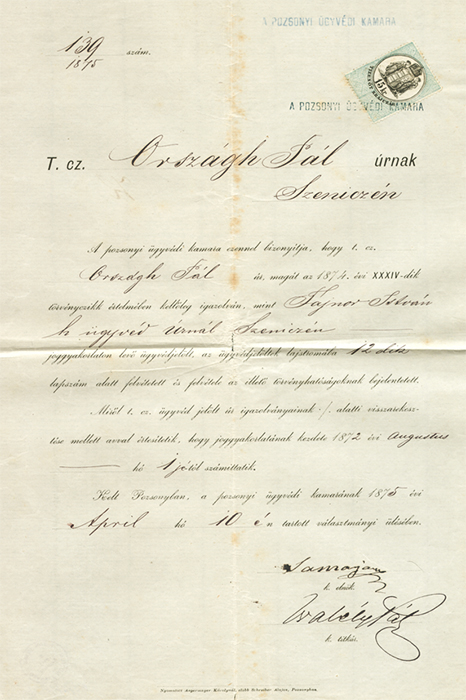 A POZSONYI ÜGYVÉDI KAMARA
139 szám.
1875
15 kr
A POZSONYI ÜGYVÉDI KAMARA
T. cz. Országh Pál úrnak
Szeniczén
A pozsonyi ügyvédi kamara ezennel bizonyitja, hogy t. cz.
Országh Pál úr, magát az 1874. évi XXXIV-dik
törvényczikk értelmében kellőleg igazolván, mint Fajnor István
h ügyvéd Urnál Szeniczén
joggyakorlaton levő ügyvédjelölt, az ügyvédjelöltek lajstromába 12 dik
lapszám alatt felvétetett és felvétele az illető törvényhatóságoknak bejelentetett.
Miről t. cz. ügyvéd jelölt úr igazolványainak ·/. alatti visszarekesz-
tése mellett avval értesitetik, hogy joggyakorlatának kezdete 1872 évi Augustus
hó 1 jétől számittatik.
Kelt Pozsonyban, a pozsonyi ügyvédi kamarának 1875 évi
April hó 10 én tartott választmányi ülésében.
k. elnök
Pál
k. titkár.
Nyomatott Angermayer Károlynál, előbb Schreiber Alajos, Pozsonyban.